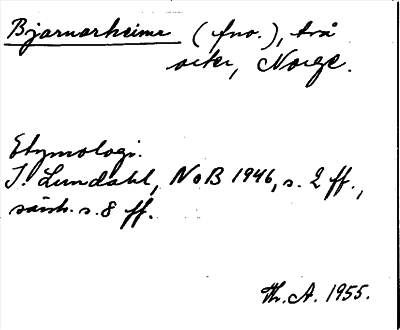 Bjarnarheimr (fno.), två
orter, Norge.
Etymologi.
I. Lundahl, NoB 1946, s. 2 ff.,
särsk. s. 8 ff.
Th. A. 1955.